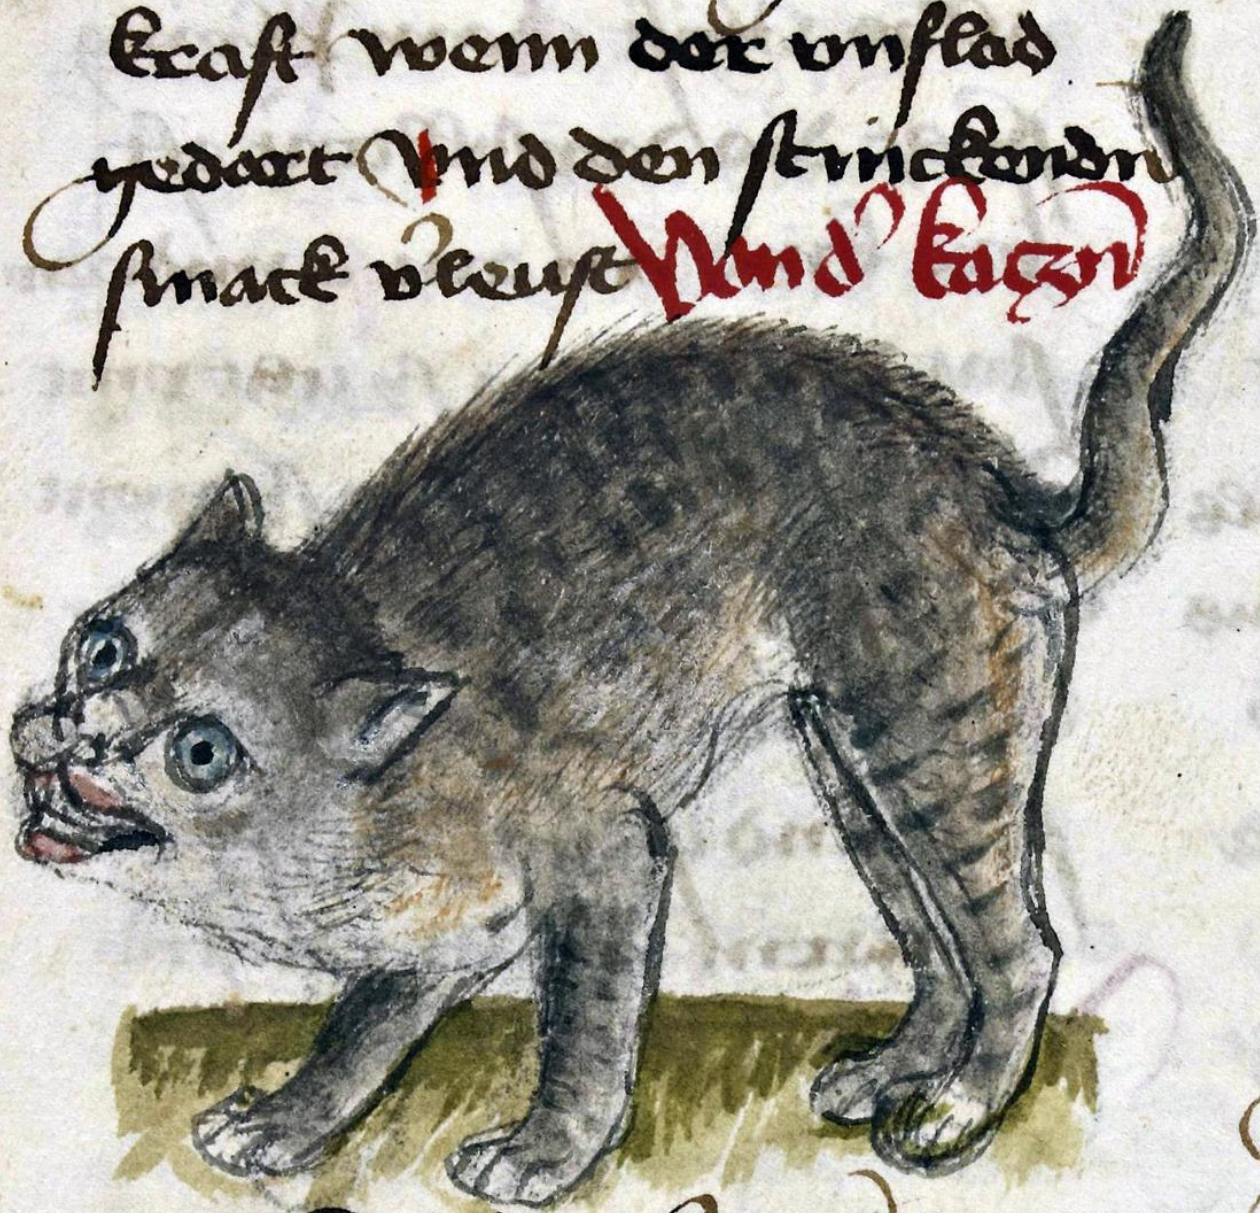 kraft wenn der vnflad
gedört Vnd den stinckendn
smack v'leust Von d' kaczn